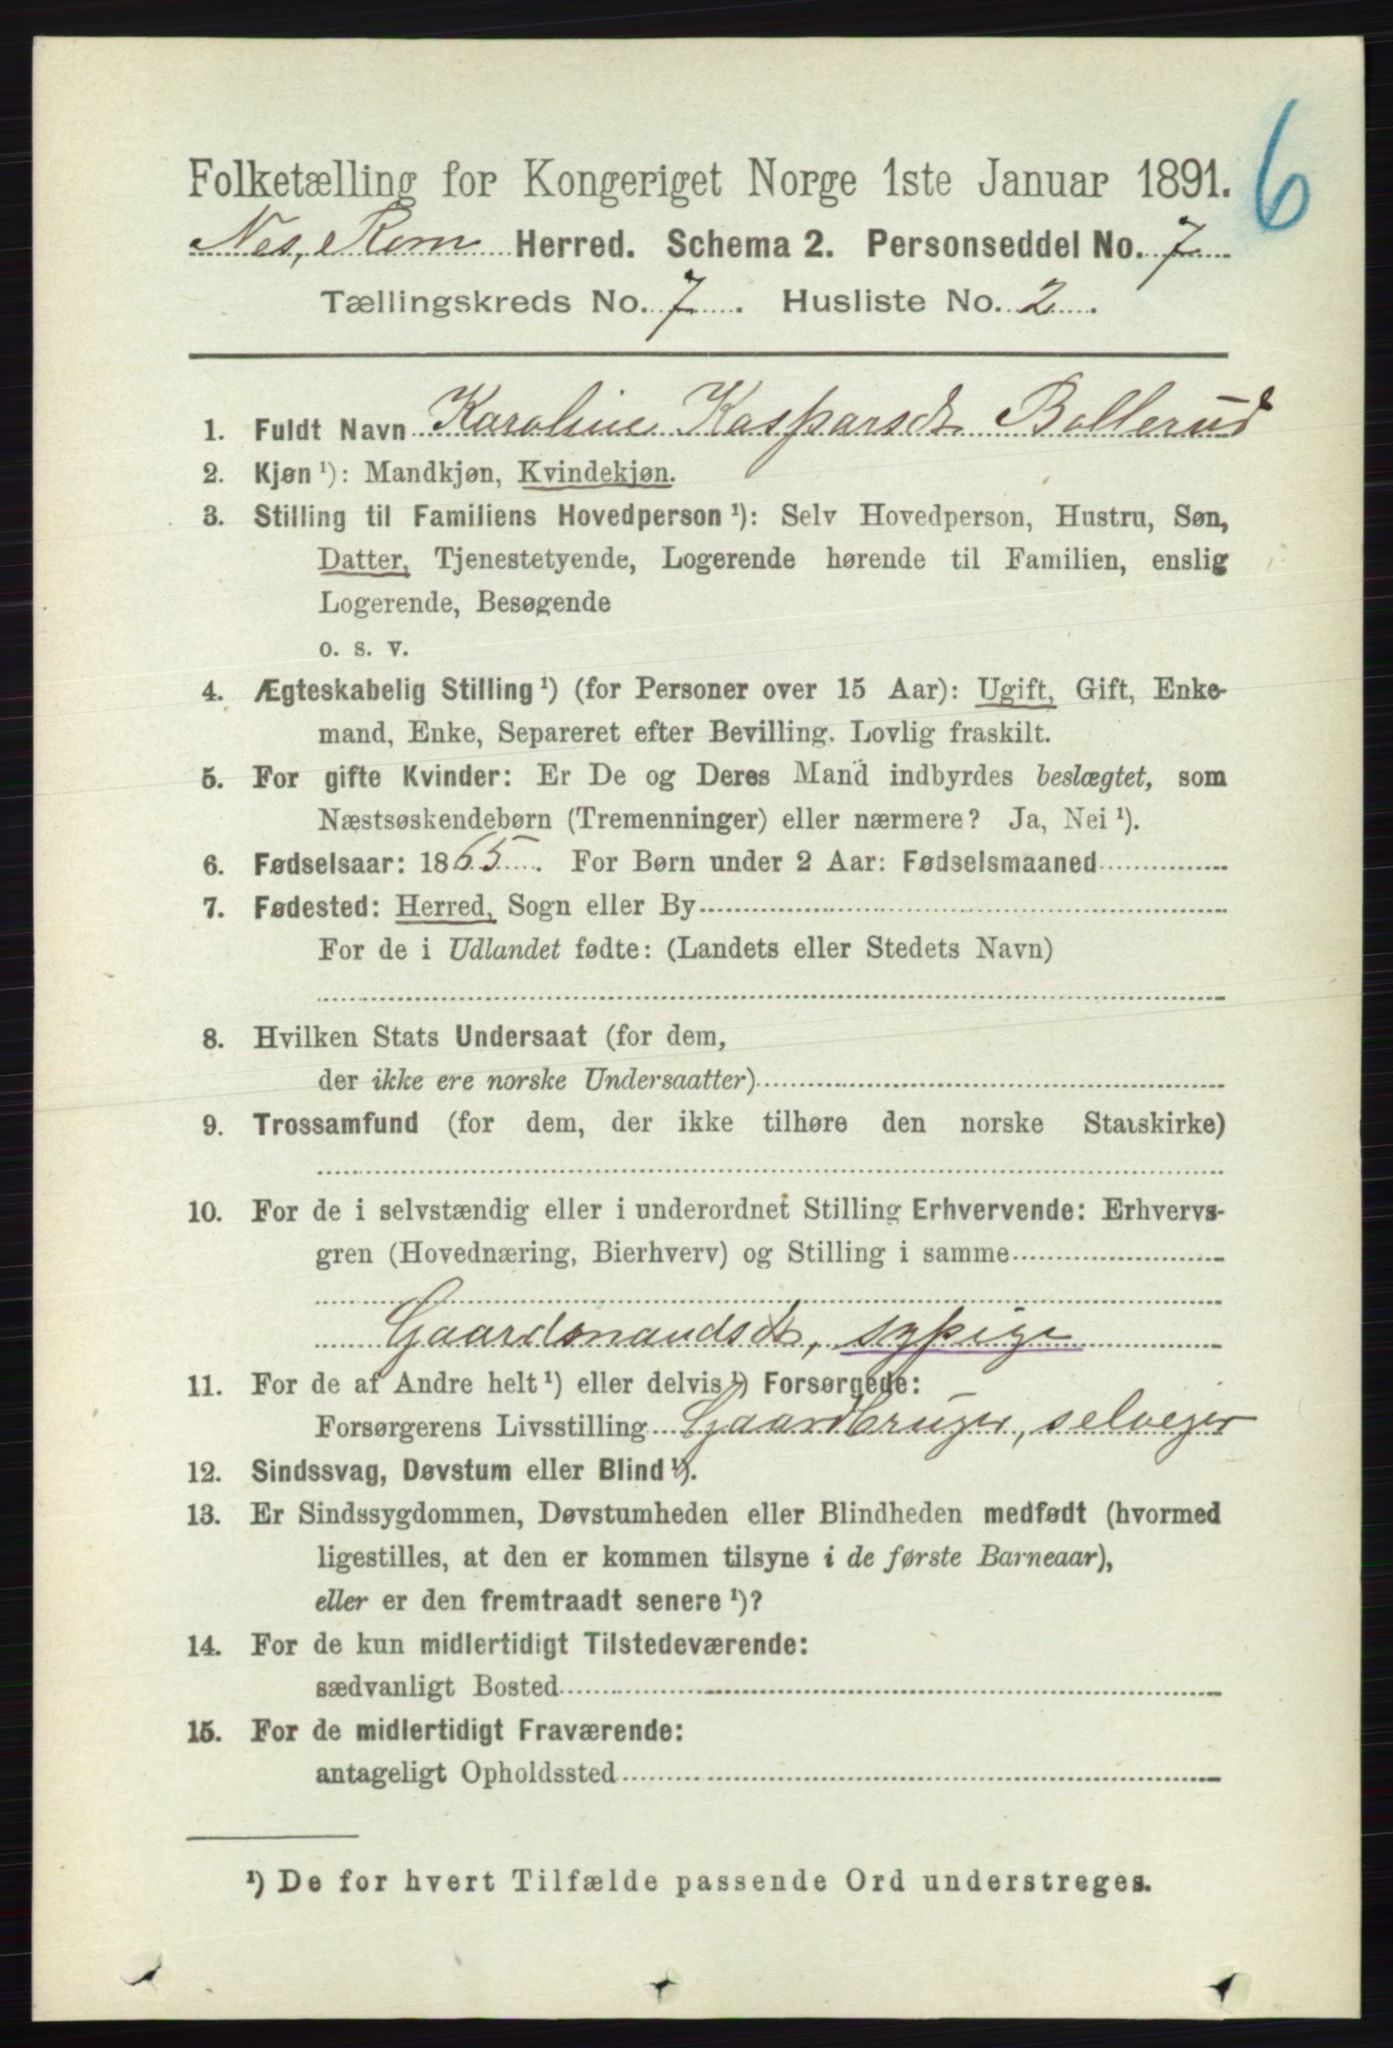 6
Folketælling for Kongeriget Norge 1ste Januar 1891.
Nes, Rom Herred. Schema 2. Personseddel No. 7
Tællingskreds No. 7. Husliste No. 2.
1. Fuldt Navn Karoline Kasparsdt Bollerud
2. Kjøn ¹): Mandkjøn, Kvindekjøn.
3. Stilling til Familiens Hovedperson ¹): Selv Hovedperson, Hustru, Søn,
Datter, Tjenestetyende, Logerende hørende til Familien, enslig
Logerende, Besøgende
o. s. v.
4. Ægteskabelig Stilling ¹) (for Personer over 15 Aar): Ugift, Gift, Enke-
mand, Enke, Separeret efter Bevilling. Lovlig fraskilt.
5. For gifte Kvinder: Er De og Deres Mand indbyrdes beslægtet, som
Næstsøskendebørn (Tremenninger) eller nærmere? Ja, Nei ¹).
6. Fødselsaar: 1865. For Børn under 2 Aar: Fødselsmaaned
7. Fødested: Herred, Sogn eller By
For de i Udlandet fødte: (Landets eller Stedets Navn)
8. Hvilken Stats Undersaat (for dem,
der ikke ere norske Undersaatter)
9. Trossamfund (for dem, der ikke tilhøre den norske Statskirke)
10. For de i selvstændig eller i underordnet Stilling Erhvervende: Erhvervs-
gren (Hovednæring, Bierhverv) og Stilling i samme
Gaardmandsdt, sypige
11. For de af Andre helt ¹) eller delvis ¹) Forsørgede:
Forsørgerens Livsstilling Gaardbruger, selveier
12. Sindssvag, Døvstum eller Blind ¹).
13. Er Sindssygdommen, Døvstumheden eller Blindheden medfødt (hvormed
ligestilles, at den er kommen tilsyne i de første Barneaar),
eller er den fremtraadt senere ¹)?
14. For de kun midlertidigt Tilstedeværende:
sædvanligt Bosted
15. For de midlertidigt Fraværende:
antageligt Opholdssted
¹) De for hvert Tilfælde passende Ord understreges.